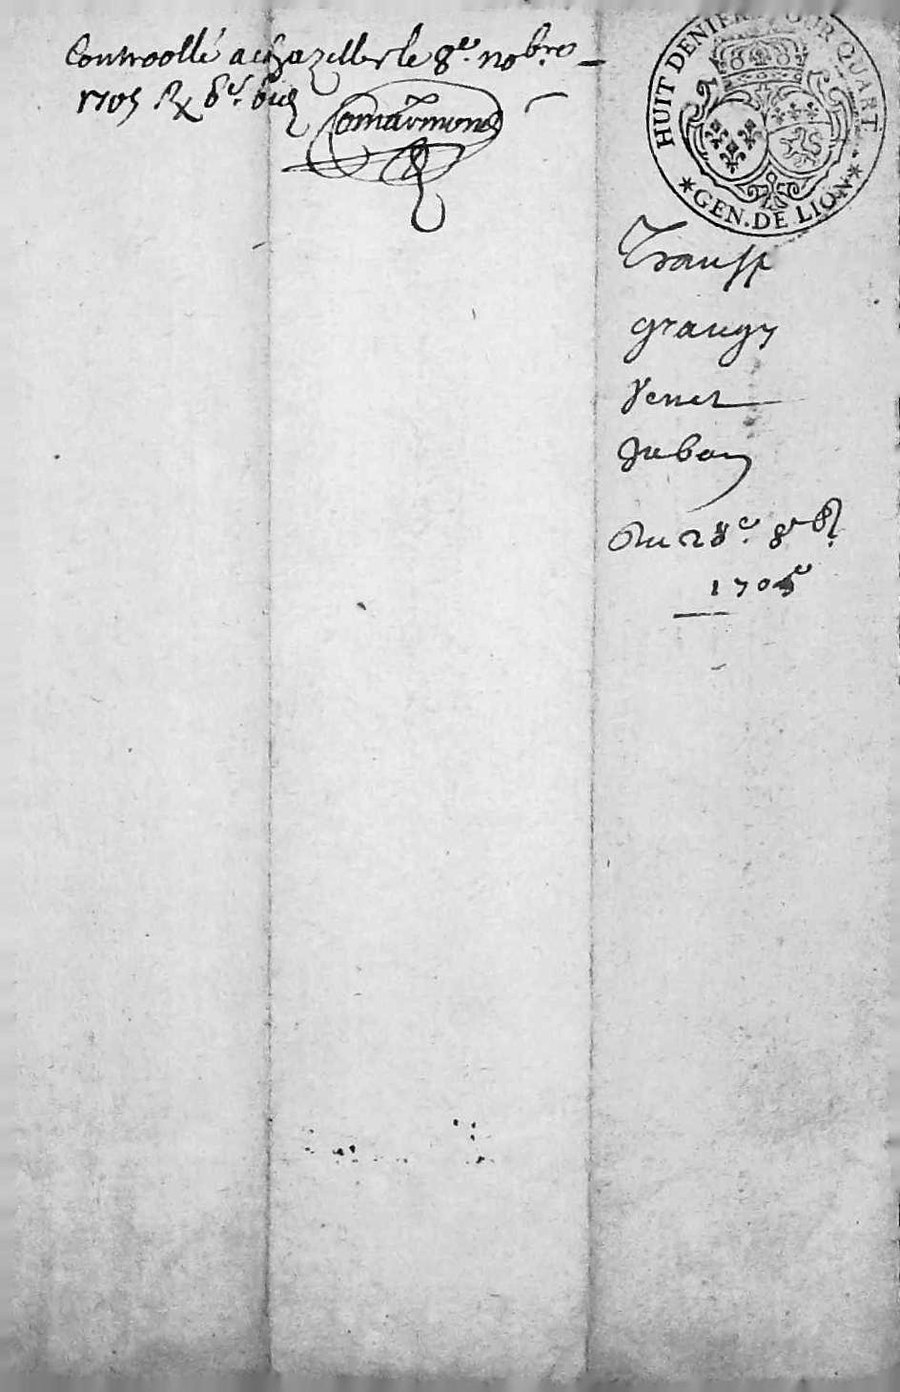 Controollé a chazelles le 8e. nobre
1705 Rx
Comarmond
HUIT DENIERS POUR QUART
* GEN. DE LION *
Transp
grangy
Venet
Du 28e. 8e
1705